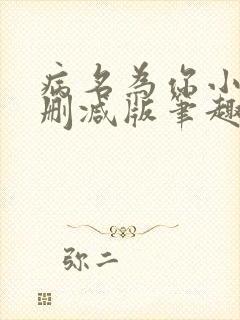 病名为你小
删减版笔趣
弥二